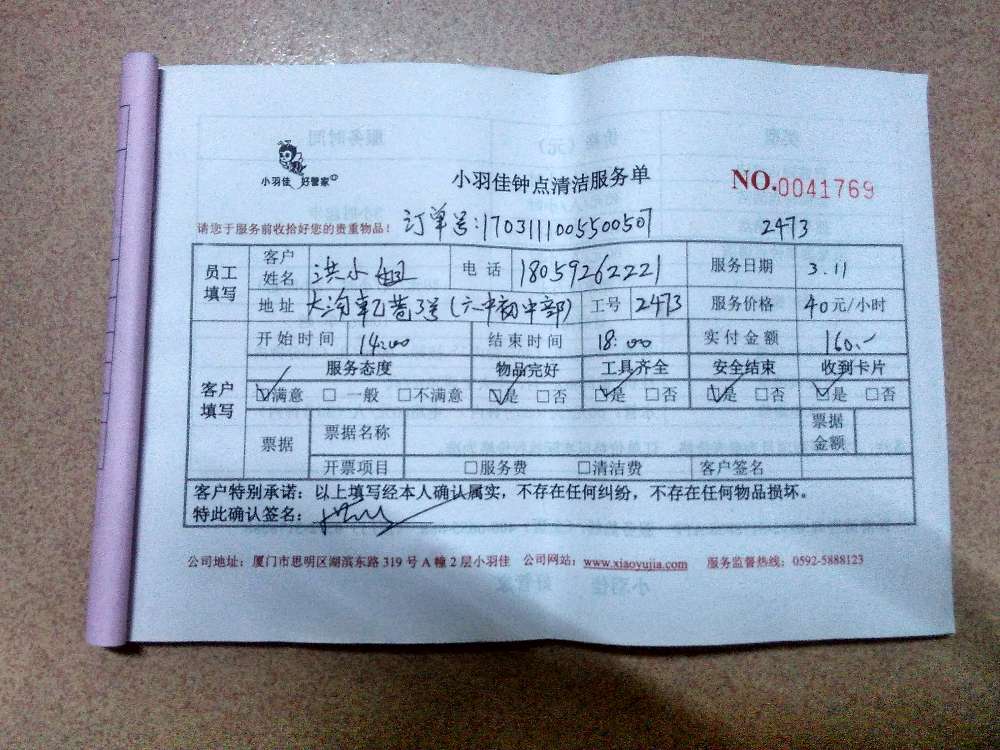 小羽佳 好管家
小羽佳钟点清洁服务单
NO.0041769
请您于服务前收拾好您的贵重物品！
订单号:1703111005500507
2473
员工填写 客户姓名 洪小姐 电话 18059262221 服务日期 3.11
地址 (六中初中部) 工号 2473 服务价格 40元/小时
客户填写 开始时间 14:00 结束时间 18:00 实付金额 160.-
服务态度 物品完好 工具齐全 安全结束 收到卡片
☑满意 □一般 □不满意 ☑是 □否 ☑是 □否 ☑是 □否 ☑是 □否
票据 票据名称 票据金额
开票项目 □服务费 □清洁费 客户签名
客户特别承诺：以上填写经本人确认属实，不存在任何纠纷，不存在任何物品损坏。
特此确认签名：
公司地址：厦门市思明区湖滨东路 319 号 A 幢 2 层小羽佳 公司网站：www.xiaoyujia.com 服务监督热线：0592-5888123